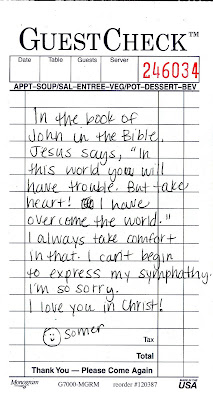 GUESTCHECK™
Date Table Guests Server
246034
APPT-SOUP/SAL-ENTREE-VEG/POT-DESSERT-BEV
In the book of
John in the Bible,
Jesus says, "In
this world you will
have trouble. But take
heart! I have
overcome the world."
I always take comfort
in that. I can't begin
to express my symphathy.
I'm so sorry.
I love you in Christ!
somer
Tax
Total
Thank You — Please Come Again
Monogram G7000-MGRM reorder #120387 MADE IN THE USA